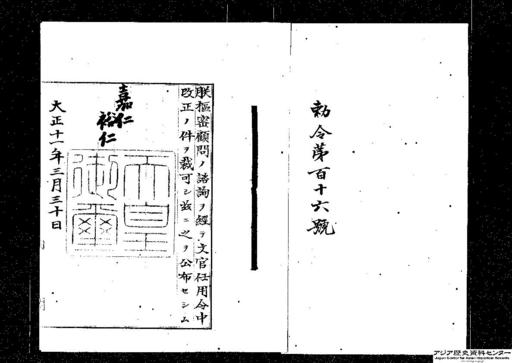 勅令第百十六號
朕樞密顧問ノ諮詢ヲ經テ文官任用令中
改正ノ件ヲ裁可シ茲ニ之ヲ公布セシム
嘉仁
裕仁
天皇御璽
大正十一年三月三十日
アジア歴史資料センター
Japan Center for Asian Historical Records